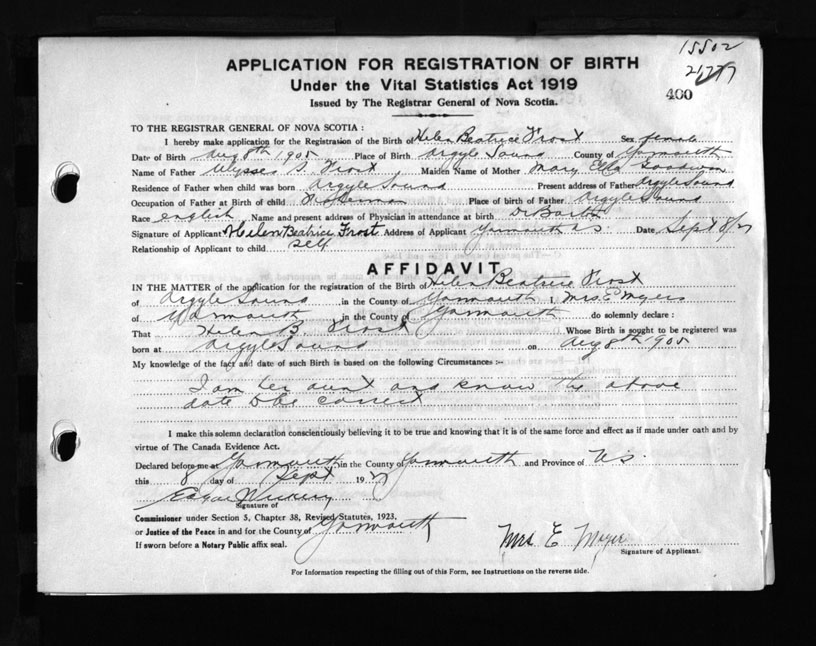 15502
21727
APPLICATION FOR REGISTRATION OF BIRTH
Under the Vital Statistics Act 1919
400
Issued by The Registrar General of Nova Scotia.
TO THE REGISTRAR GENERAL OF NOVA SCOTIA :
I hereby make application for the Registration of the Birth of Helen Beatrice Frost Sex female
Date of Birth Aug 8th 1905 Place of Birth Argyle Sound County of Yarmouth
Name of Father Ulysses S. Frost Maiden Name of Mother Mary Ella Goodwin
Residence of Father when child was born Argyle Sound Present address of Father Argyle Sound
Occupation of Father at Birth of child Fisherman Place of birth of Father Argyle Sound
Race english Name and present address of Physician in attendance at birth Dr
Signature of Applicant Helen Beatrice Frost Address of Applicant Yarmouth NS Date Sept 8/27
Relationship of Applicant to child self
AFFIDAVIT
IN THE MATTER of the application for the registration of the Birth of Helen Beatrice Frost
of Argyle Sound in the County of Yarmouth I, Mrs E Myers
of Yarmouth in the County of Yarmouth do solemnly declare :
That Helen B. Frost Whose Birth is sought to be registered was
born at Argyle Sound on Aug 8th 1905
My knowledge of the fact and date of such Birth is based on the following Circumstances :-
I am her aunt and know the above
date to be correct
I make this solemn declaration conscientiously believing it to be true and knowing that it is of the same force and effect as if made under oath and by
virtue of The Canada Evidence Act.
Declared before me at Yarmouth in the County of Yarmouth and Province of N.S.
this 8 day of Sept 1927
Signature of
Commissioner under Section 5, Chapter 38, Revised Statutes, 1923.
or Justice of the Peace in and for the County of Yarmouth
If sworn before a Notary Public affix seal.
Mrs E Myers
Signature of Applicant.
For Information respecting the filling out of this Form, see Instructions on the reverse side.